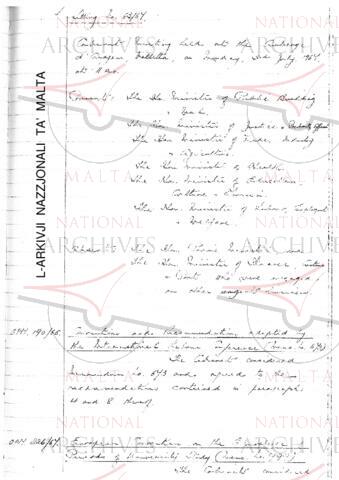 Sitting No. 52/67.
Cabinet Meeting held at the Auberge
d'Aragon Valletta, on Monday, July 1967,
at
Present: The Hon Minister of Public Building
& Works
The Hon Minister of Justice &
The Hon Minister of Trade, Industry
& Agriculture.
The Hon Minister of Health
The Hon. Minister of Education,
Culture & Tourism
The Hon. Minister of Labour, Employment
& Welfare.
Absent: The Hon. Prime Minister and
The Hon. Minister of Finance, Customs
& Ports who were engaged
on other urgent business.
OPM. 190/65. Conventions and Recommendation adopted by
the International Labour Conference (Memo. No. 543)
The Cabinet considered
Memorandum No. 543 and agreed to the
recommendations contained in paragraphs
4 and 8 thereof.
OPM /67. European Convention on the Equivalence of
Periods of University Study (Memo. No.
The Cabinet considered
L-ARKIVJI NAZZJONALI TA' MALTA
NATIONAL
ARCHIVES
MALTA